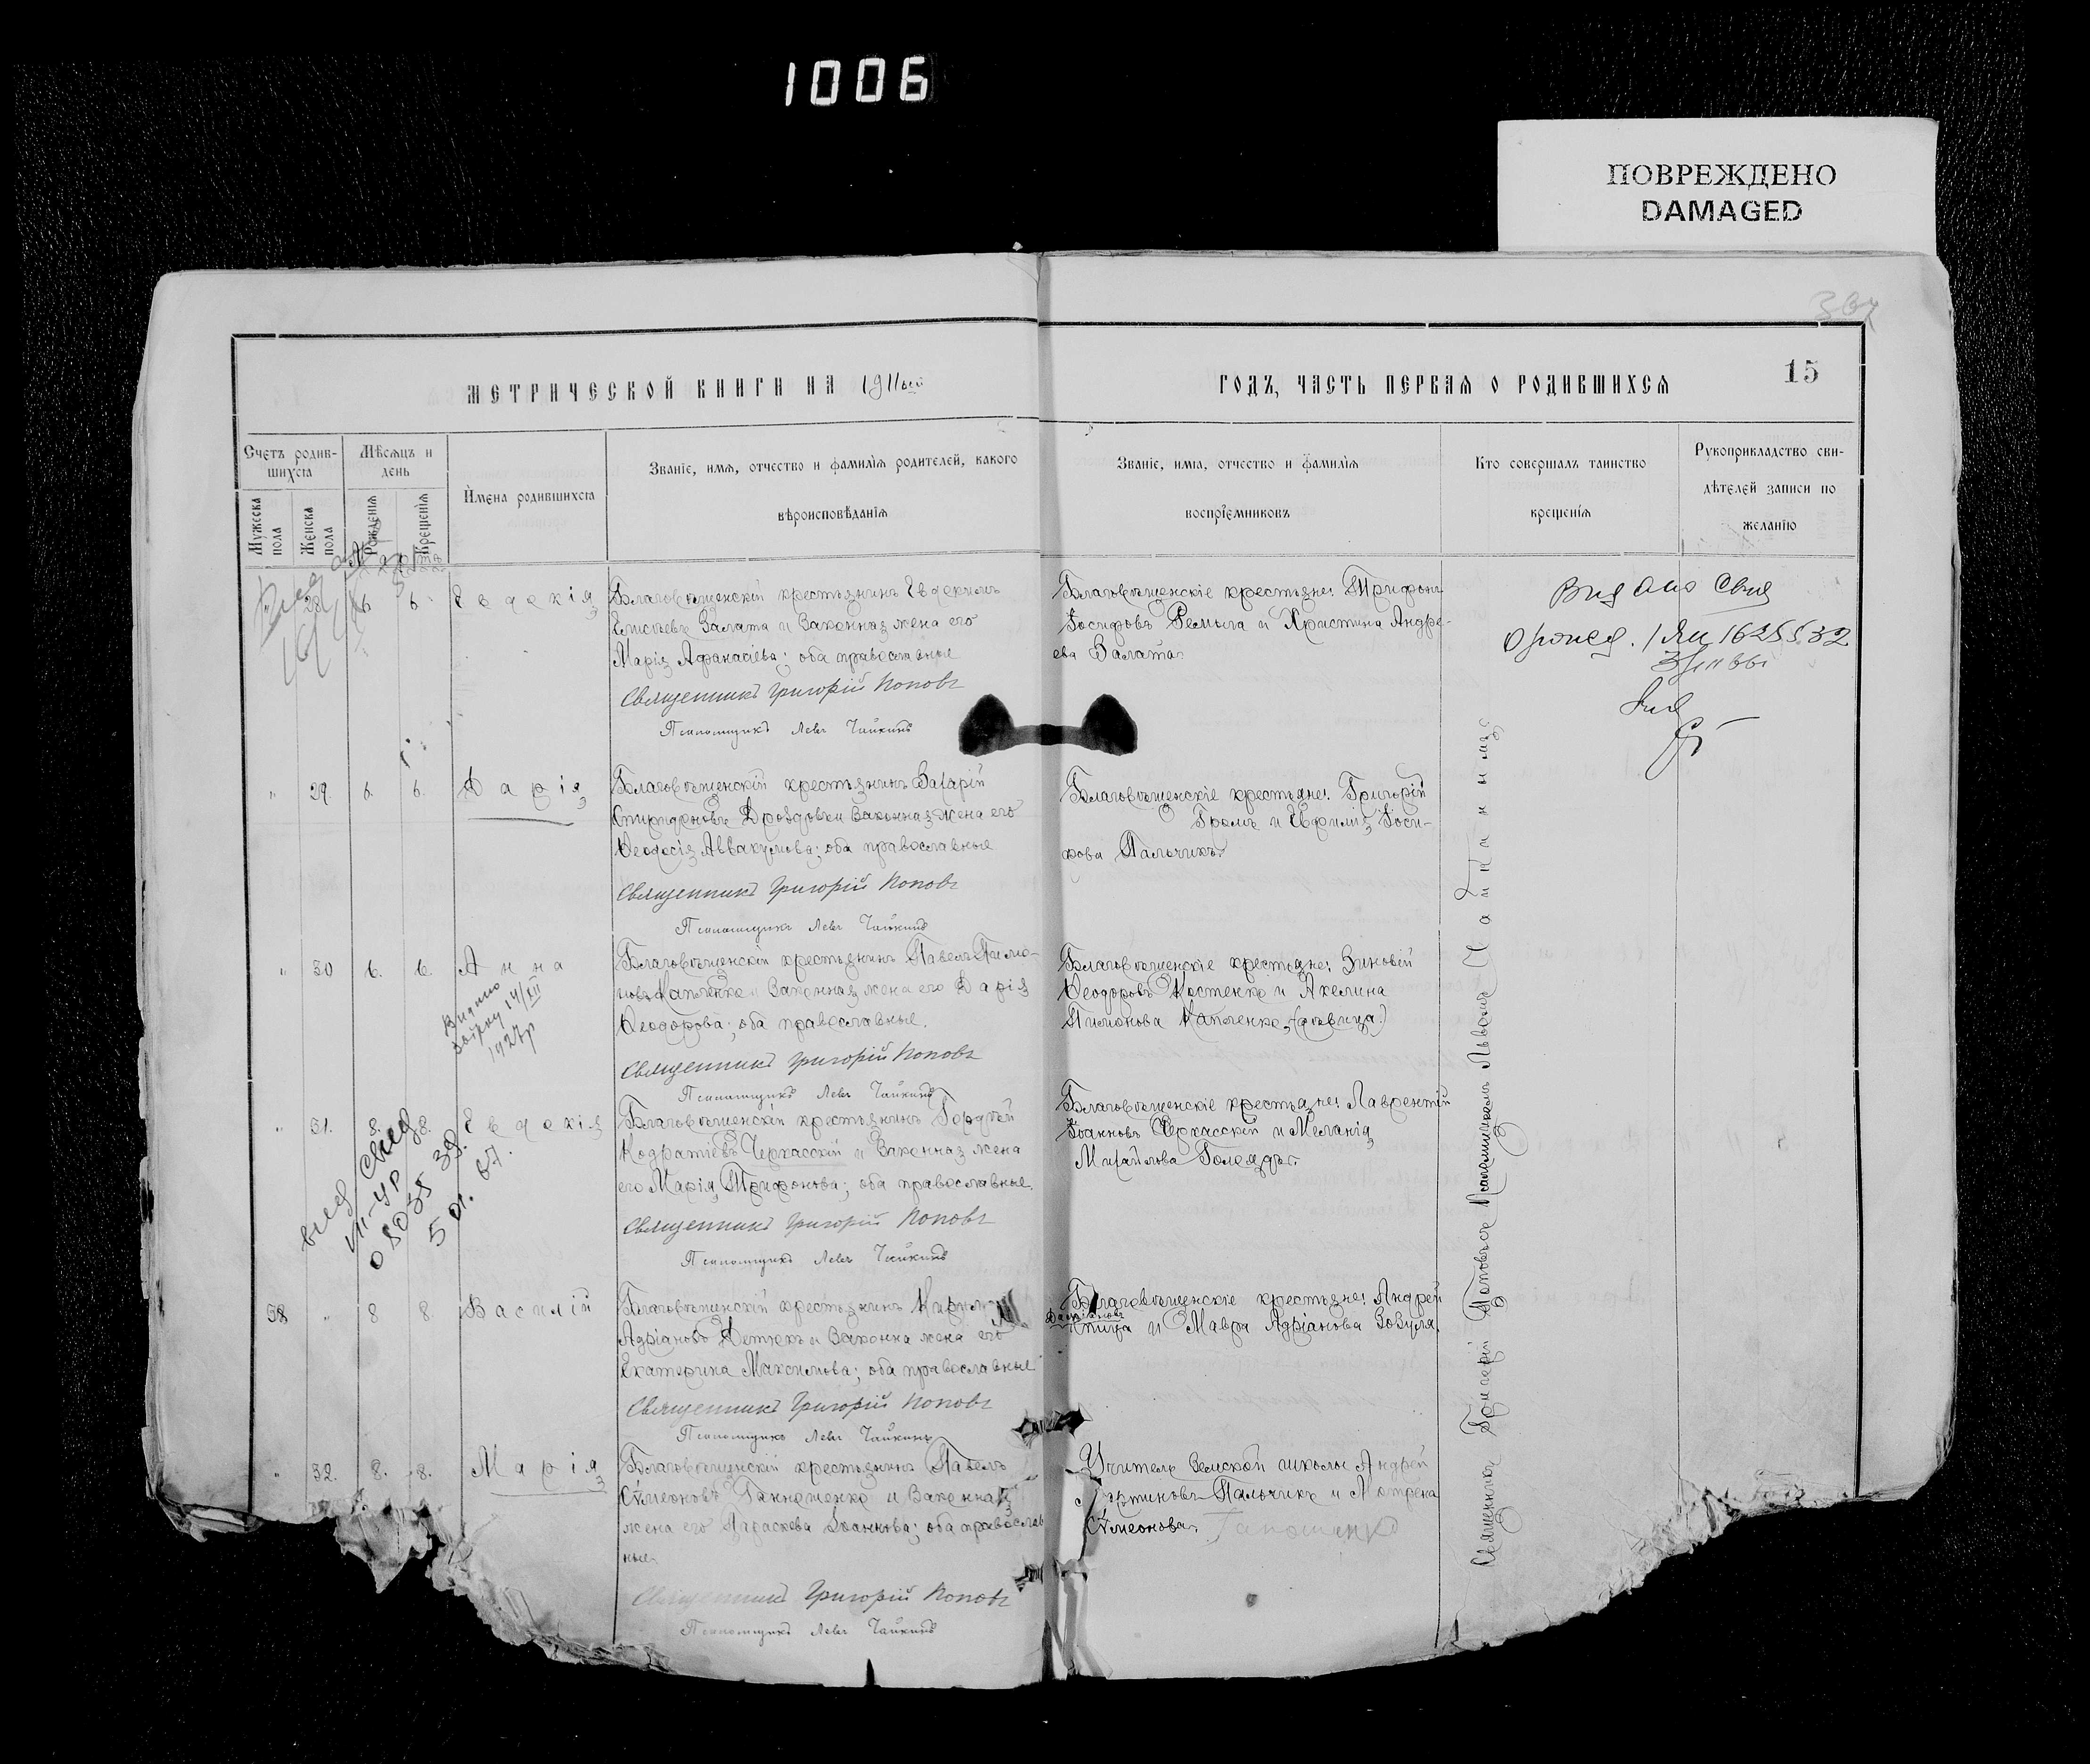 1006
ПОВРЕЖДЕНО
DAMAGED
МЕТРИЧЕСКОЙ КНИГИ НА 1911ый
ГОДЪ, ЧАСТЬ ПЕРВАЯ О РОДИВШИХСЯ
15
Счетъ родив-
шихся
Мужеска пола
Женска пола
Мѣсяцъ и
день
Рожденія
Крещенія
Имена родившихся
Званіе, имя, отчество и фамилія родителей, какого
вѣроисповѣданія
Званіе, имя, отчество и фамилія
воспріемниковъ
Кто совершалъ таинство
крещенія
Рукоприкладство сви-
дѣтелей записи по
желанію
28 6 6. Евдокія
Благовѣщенскій крестьянинъ Евдокимъ
Елисѣевъ Залата и законная жена его
Марія Афанасіева; оба православные
Священникъ Григорій Поповъ
Псаломщикъ Левъ Чайкинъ
Благовѣщенскіе крестьяне: Трифонъ
Іосифовъ Ремыга и Христина Андре-
ева Залата.
" 29. 6. 6. Дарія
Благовѣщенскій крестьянинъ Захарій
Спиридоновъ Дроздовъ и законная жена его
Ѳеодосія Аввакумова; оба православные
Священникъ Григорій Поповъ
Псаломщикъ Левъ Чайкинъ
Благовѣщенскіе крестьяне: Григорій
Громъ и Евфимія Іоси-
фова Пальчикъ.
" 30 6. 6. Анна
Видано
14/XII
1927р
Благовѣщенскій крестьянинъ Павелъ Пимо-
новъ Капленко и законная жена его Дарія
Ѳеодорова; оба православные.
Священникъ Григорій Поповъ
Псаломщикъ Левъ Чайкинъ
Благовѣщенскіе крестьяне: Зиновій
Ѳеодоровъ Костенко и Акелина
Пимонова Капленко, (дѣвица.)
" 31. 8. 8. Евдокія
Благовѣщенскій крестьянинъ Гордѣй
Кодратіевъ Черкасскій и законная жена
его Марія Трифонова; оба православные.
Священникъ Григорій Поповъ
Псаломщикъ Левъ Чайкинъ
Благовѣщенскіе крестьяне: Лаврентій
Іоанновъ Черкасскій и Меланія
Михайлова Голодъ.
38 " 8 8. Василій
Благовѣщенскій крестьянинъ
Адріановъ и законна жена его
Екатерина Максимова; оба православные
Священникъ Григорій Поповъ
Псаломщикъ Левъ Чайкинъ
Благовѣщенскіе крестьяне: Андрей
и Мавра Адріанова Зозуля.
" 32. 8. 8. Марія
Благовѣщенскій крестьянинъ Павелъ
Сѵмеоновъ и законная
жена его Параскева Іоаннова; оба православ
ные.
Священникъ Григорій Поповъ
Псаломщикъ Левъ Чайкинъ
Учитель Земской школы Андрей
Мартиновъ Пальчикъ и Мотрена
Сѵмеонова.
Священникъ Григорій Поповъ съ Псаломщикомъ Львомъ Чайкинымъ